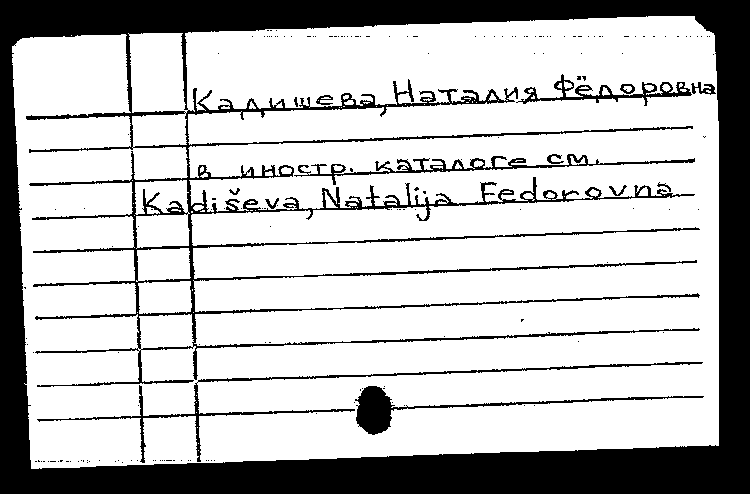 Кадишева, Наталия Фёдоровна
в иностр. каталоге см.
Kadiševa, Natalija Fedorovna